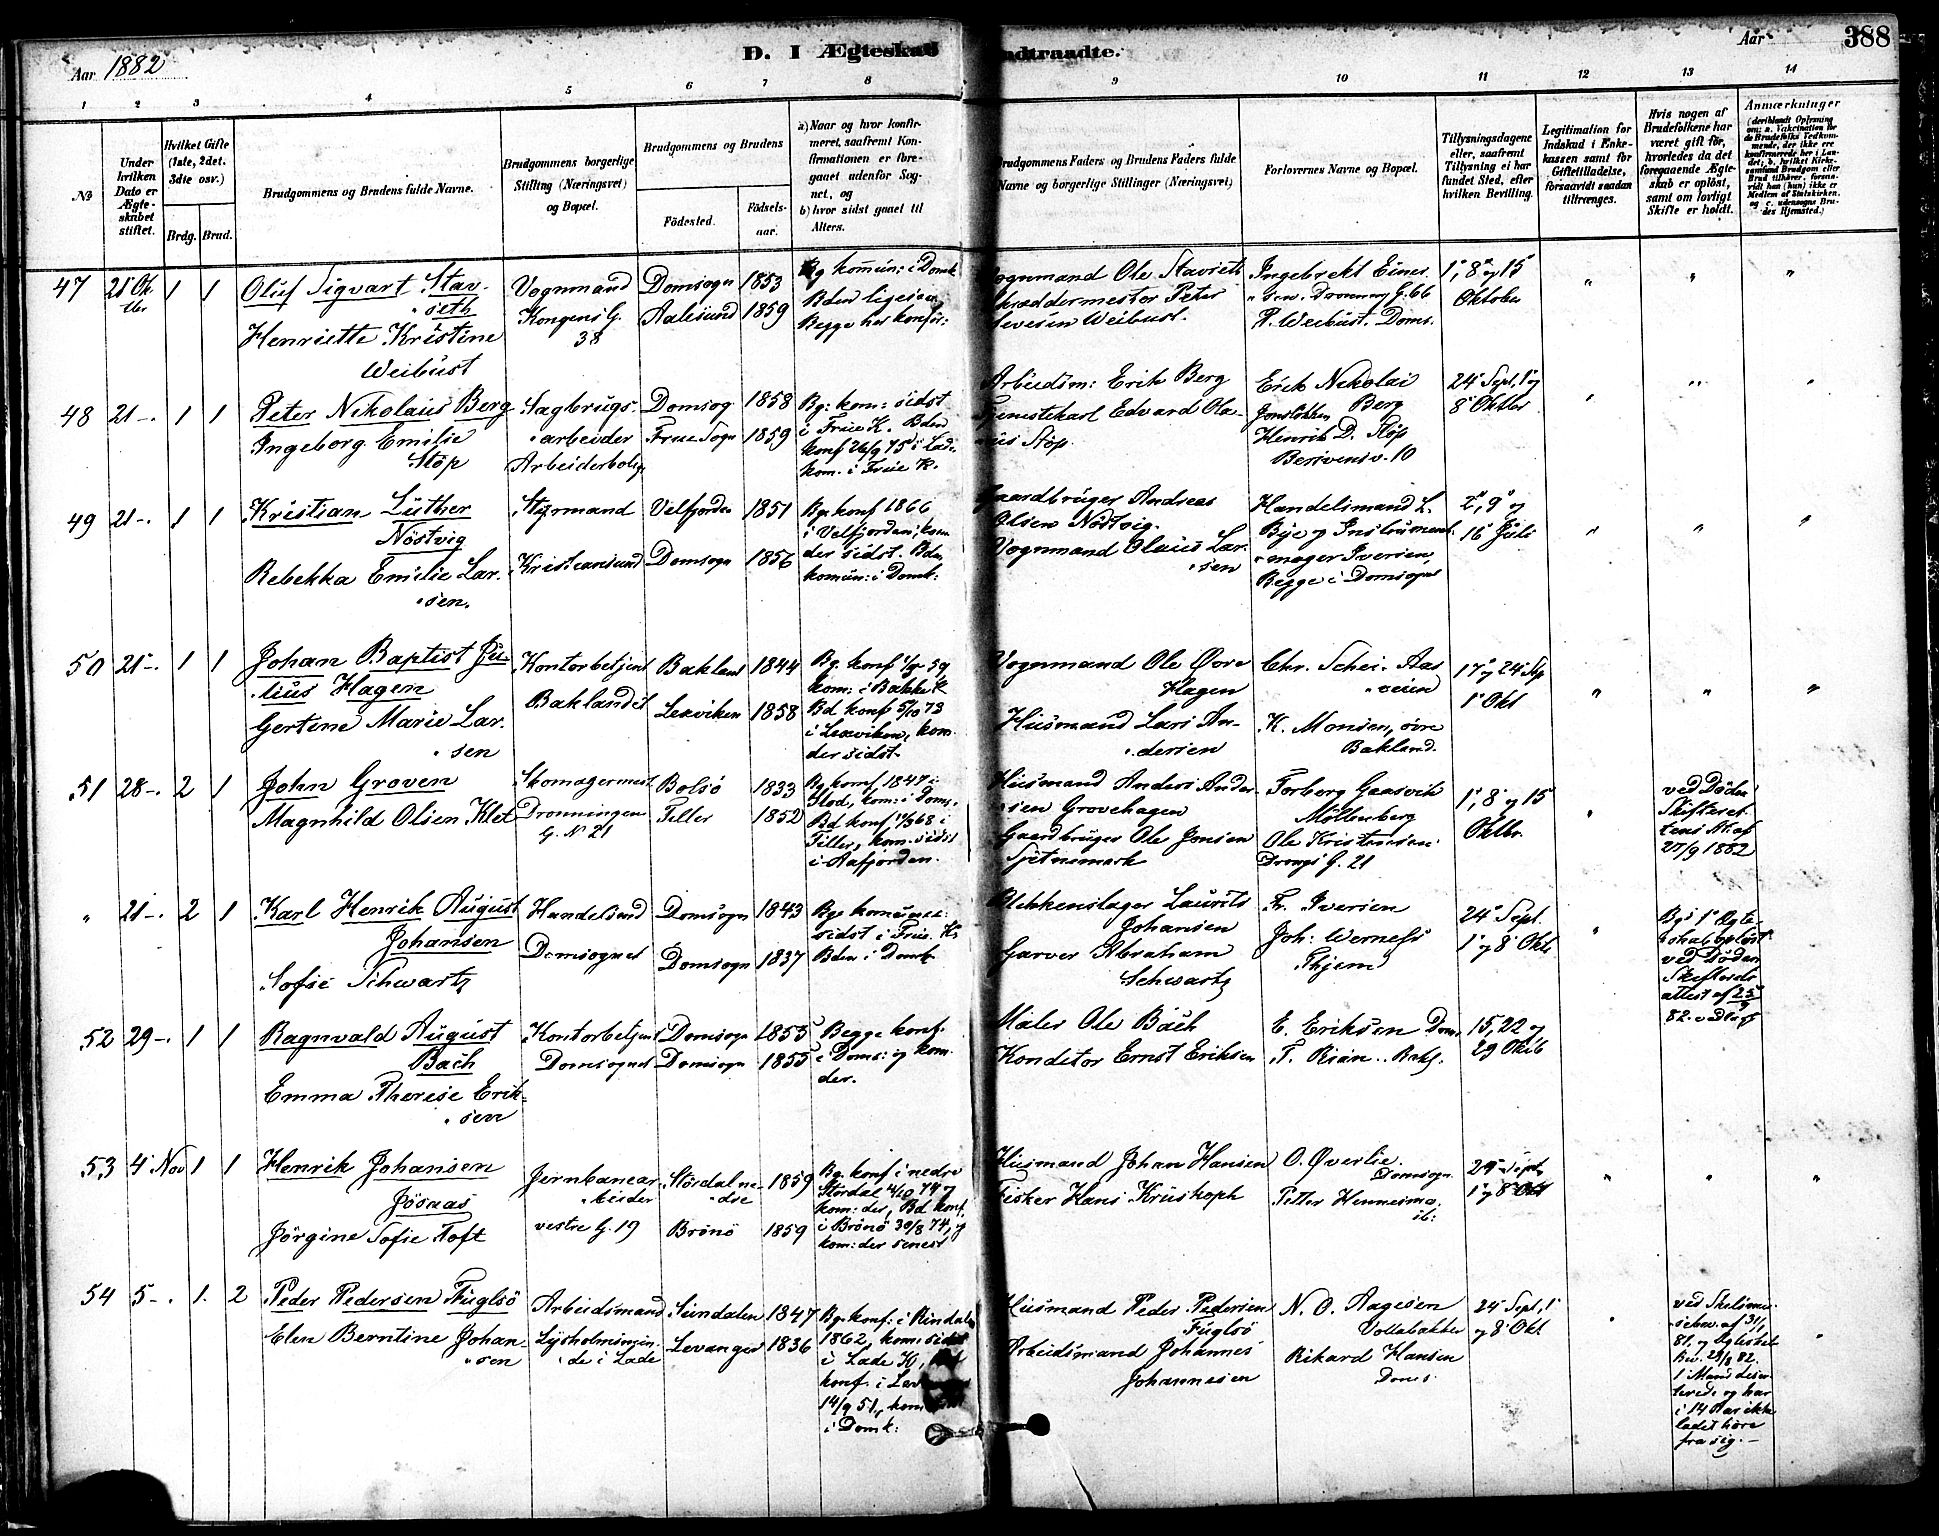 Aar 1882
D. I Ægteskab
indtraadte.
Aar
388
1 2 3 4 5 6 7 8 9 10 11 12 13 14
No
Under hvilken Dato er Ægteskabet stiftet.
Hvilket Gifte (1ste, 2det, 3die osv.)
Brdg. Brud.
Brudgommens og Brudens fulde Navne.
Brudgommens borgerlige Stilling (Næringsvei) og Bopæl.
Brudgommens og Brudens
Födested.
Födselsaar.
a) Naar og hvor konfirmeret, saafremt Konfirmationen er foregaaet udenfor Sognet, og
b) hvor sidst gaaet til Alters.
Brudgommens Faders og Brudens Faders fulde Navne og borgerlige Stillinger (Næringsvei)
Forlovernes Navne og Bopæl.
Tillysningsdagene eller, saafremt Tillysning ei har fundet Sted, efter hvilken Bevilling.
Legitimation for Indskud i Enkekassen samt for Giftetilladelse, forsaavidt saadan tiltrænges.
Hvis nogen af Brudefolkene har været gift för, hvorledes da det foregaaende Ægteskab er oplöst, samt om lovligt Skifte er holdt.
Anmærkninger
47 21 Oktbr 1 1
Oluf Sigvart Stavseth
Henriette Kristine
Weibust
Vognmand
Kongens G.
38
Domsogn 1853
Aalesund 1859
Bg kommun: i Domk
Bden ligesaa
Begge her konfir:
Vognmand Ole Stavseth
Skræddermester Peter
Weibust.
Dronning G. 66
P. Weibust. Doms.
1', 8' og 15
Oktober
48 21-. 1 1
Peter Nikolaus Berg
Ingeborg Emilie
Stöp
Sagbrugsarbeider
Arbeiderbolig
Domsog 1858
Frue Sogn 1859
Bg: kom: sidst
i Frue K. Bden
konf 26/9 75 i Lade
kom. i Frue K.
Arbeidsm: Erik Berg
Tjenestekarl Edvard Olaius Stöp.
Erik Nikolai
Berg
Henrik D. Stöp
10
24 Sept, 1' og
8' Oktbr
49 21-. 1 1
Kristian Luther
Nöstvig
Rebekka Emilie Larsen.
Styrmand
Kristiansund
Velfjorden 1851
Domsogn 1856
Bg. konf 1866
i Velfjorden, kom
der sidst. Bden
kommun: i Domk:
Gaardbruger Andreas
Olsen Nöstvig.
Vognmand Olaus Larsen
Handelsmand L.
Bye og Instrumentmager Iversen,
Begge i Domsognet
2', 9' og
16' Juli
50 21-. 1 1
Johan Baptist Julius Hagen
Gertine Marie Larsen
Kontorbetjent
Baklandet
Bakland 1844
Lexviken 1858
kom: i Bakke K
Bd konf 5/10 73
i Lexviken, kom
der sidst.
Vognmand Ole Övre
Hagen
Husmand Lars Andersen
Chr. Schei. Aasveien
K. Monsen, övre
Bakland.
17' og 24' Sep
1' Okt
51 28-. 2 1
John Groven
Magnhild Olsen Klet
Skomagermest
Dronningens
G. N 21
Bolsö 1833
Tiller 1852
Bg konf 1847 i
kom: i Doms.
Tiller, kom. sidst
i Aafjorden.
Husmand Anders Andersen Grovehagen
Gaardbruger Ole Jonsen
Torberg Gaasvik
Möllenberg
Ole Kristensen
Drongs G. 21
1', 8' og 15'
Oktbr.
ved Döden
Skifteret
27/9 1882
" 21-. 2 1
Karl Henrik August
Johansen
Sofie Schwartz
Domsognet
Domsogn 1843
Domsogn 1837
sidst i Frue K.
Bden i Domk
Blikkenslager Laurits
Johansen
Garver Abraham
Schwartz
Fr. Iversen
24' Sept.
1' og 8' Okt
Bgs 1' Ægteskab oplöst
ved Döden
Skifterets
attest af 25
52 29-. 1 1
Ragnvald August
Bach
Emma Therese Eriksen
Kontorbetjent
Domsognet
Domsogn 1855
Domsogn 1855
Begge konf.
i Doms: og kom.
der.
Maler Ole Bach
Konditor Ernst Eriksen
E. Eriksen Doms
T. Rian.. Bakl.
15, 22 og
29 Oktb
53 4' Nov 1 1
Henrik Johansen
Jösaas
Jörgine Sofie Toft
Jernbanearbeider
vestre G. 19
Stördal nedre 1859
Brönö 1859
Bg. konf i nedre
Stördal 4/10 74 og
kom: der, Bd konf.
i Brönö 30/8 74, og
kom: der senest
Husmand Johan Hansen
Fisker Hans Kristoph
O. Överlie
Domsogn
Petter Hennesmo
24' Sept,
1' og 8' Okt
54 5-. 1. 2
Peder Pedersen Fuglsö
Elen Berntine Johansen
Arbeidsmand
i Lade
Sundalen 1847
Levanger 1836
Bg. konf: i Rindalen
1862, kom: sidst
i Lade K,
konf. i Lev
14/9 51, kom
i Domk:
Husmand Peder Pedersen
Fuglsö
Arbeidsmand Johannes
Johannesen
N. O. Aagesen
Vollabakken
Rikard Hansen
Doms.
24 Sept, 1'
og 8' Okt
1 Mand deserterede og har
i 14 Aar ikke
ladet höre
fra sig. -